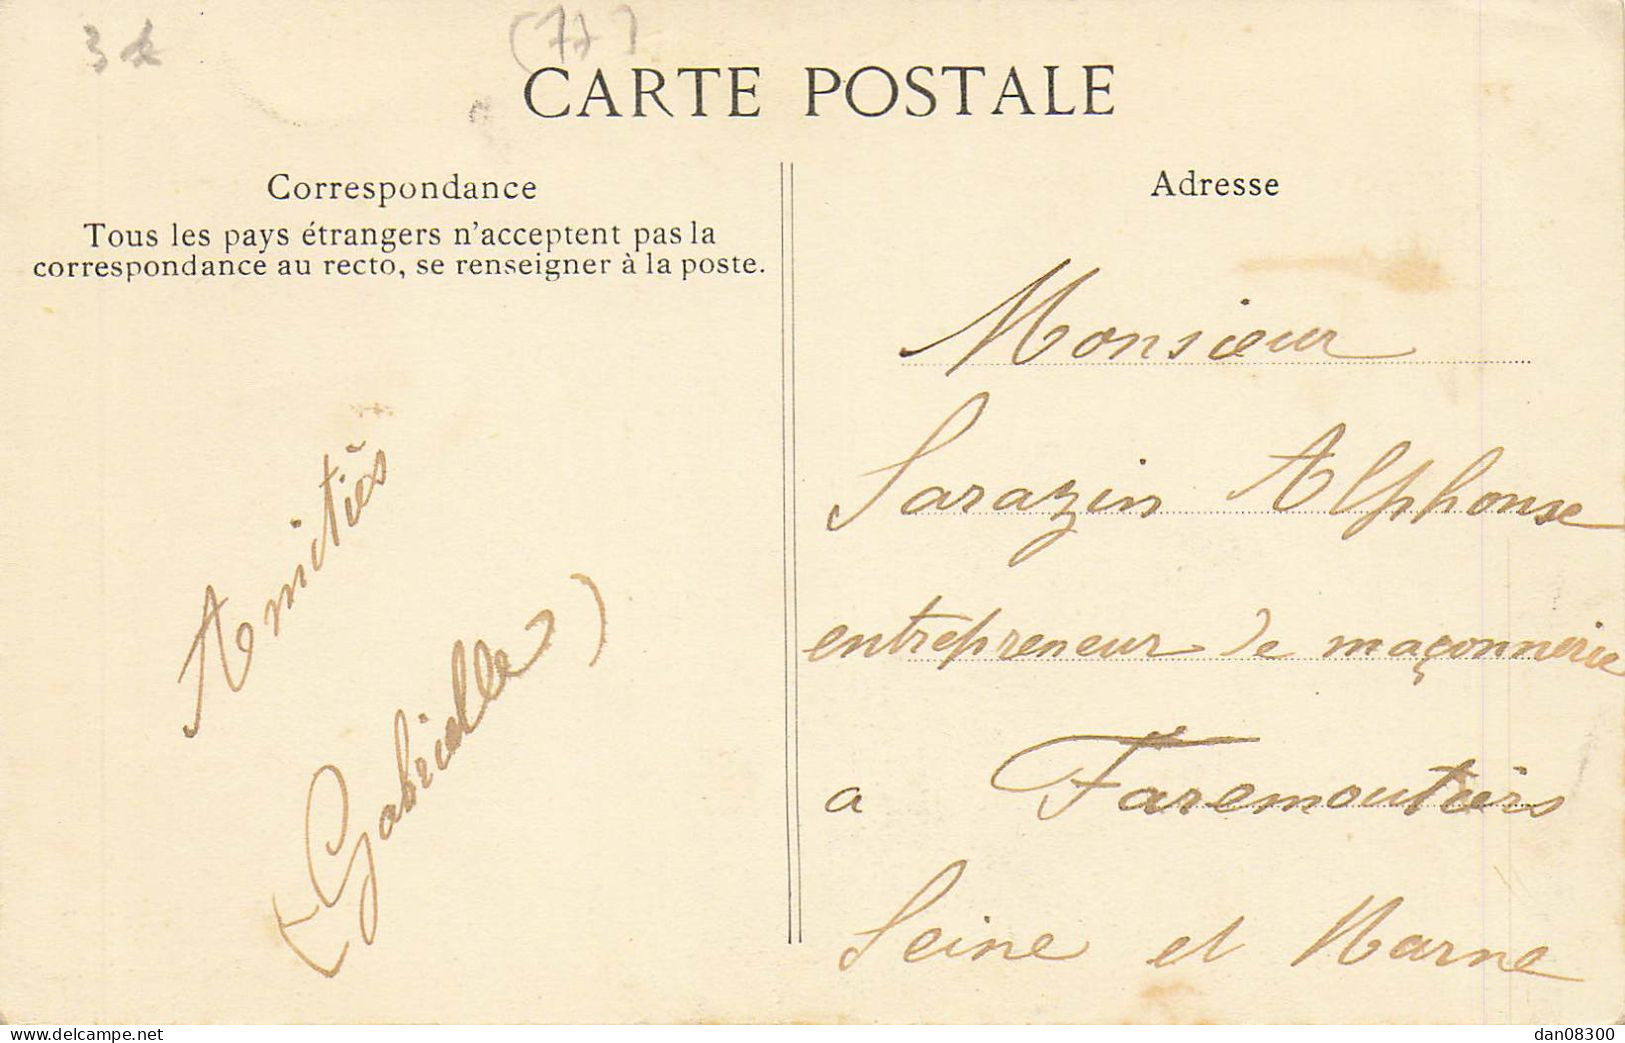 (77)
CARTE POSTALE
Correspondance
Tous les pays étrangers n'acceptent pas la
correspondance au recto, se renseigner à la poste.
Amitiés
Gabrielle
Adresse
Monsieur
Sarazin Alphonse
entrepreneur de maçonnerie
a Faremoutiers
Seine et Marne
delcampe.net
dan08300